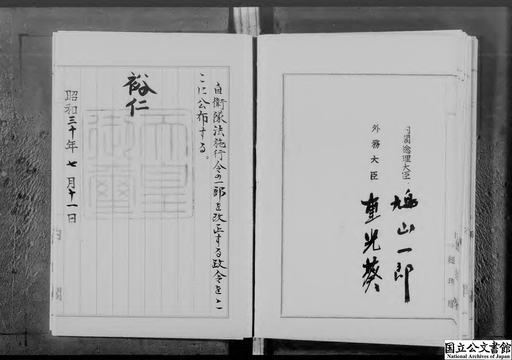 自衛隊法施行令の一部を改正する政令をこ
こに公布する。
裕仁
昭和三十年七月十一日
天皇
御璽
内閣総理大臣
鳩山一郎
外務大臣
重光葵
国立公文書館
National Archives of Japan